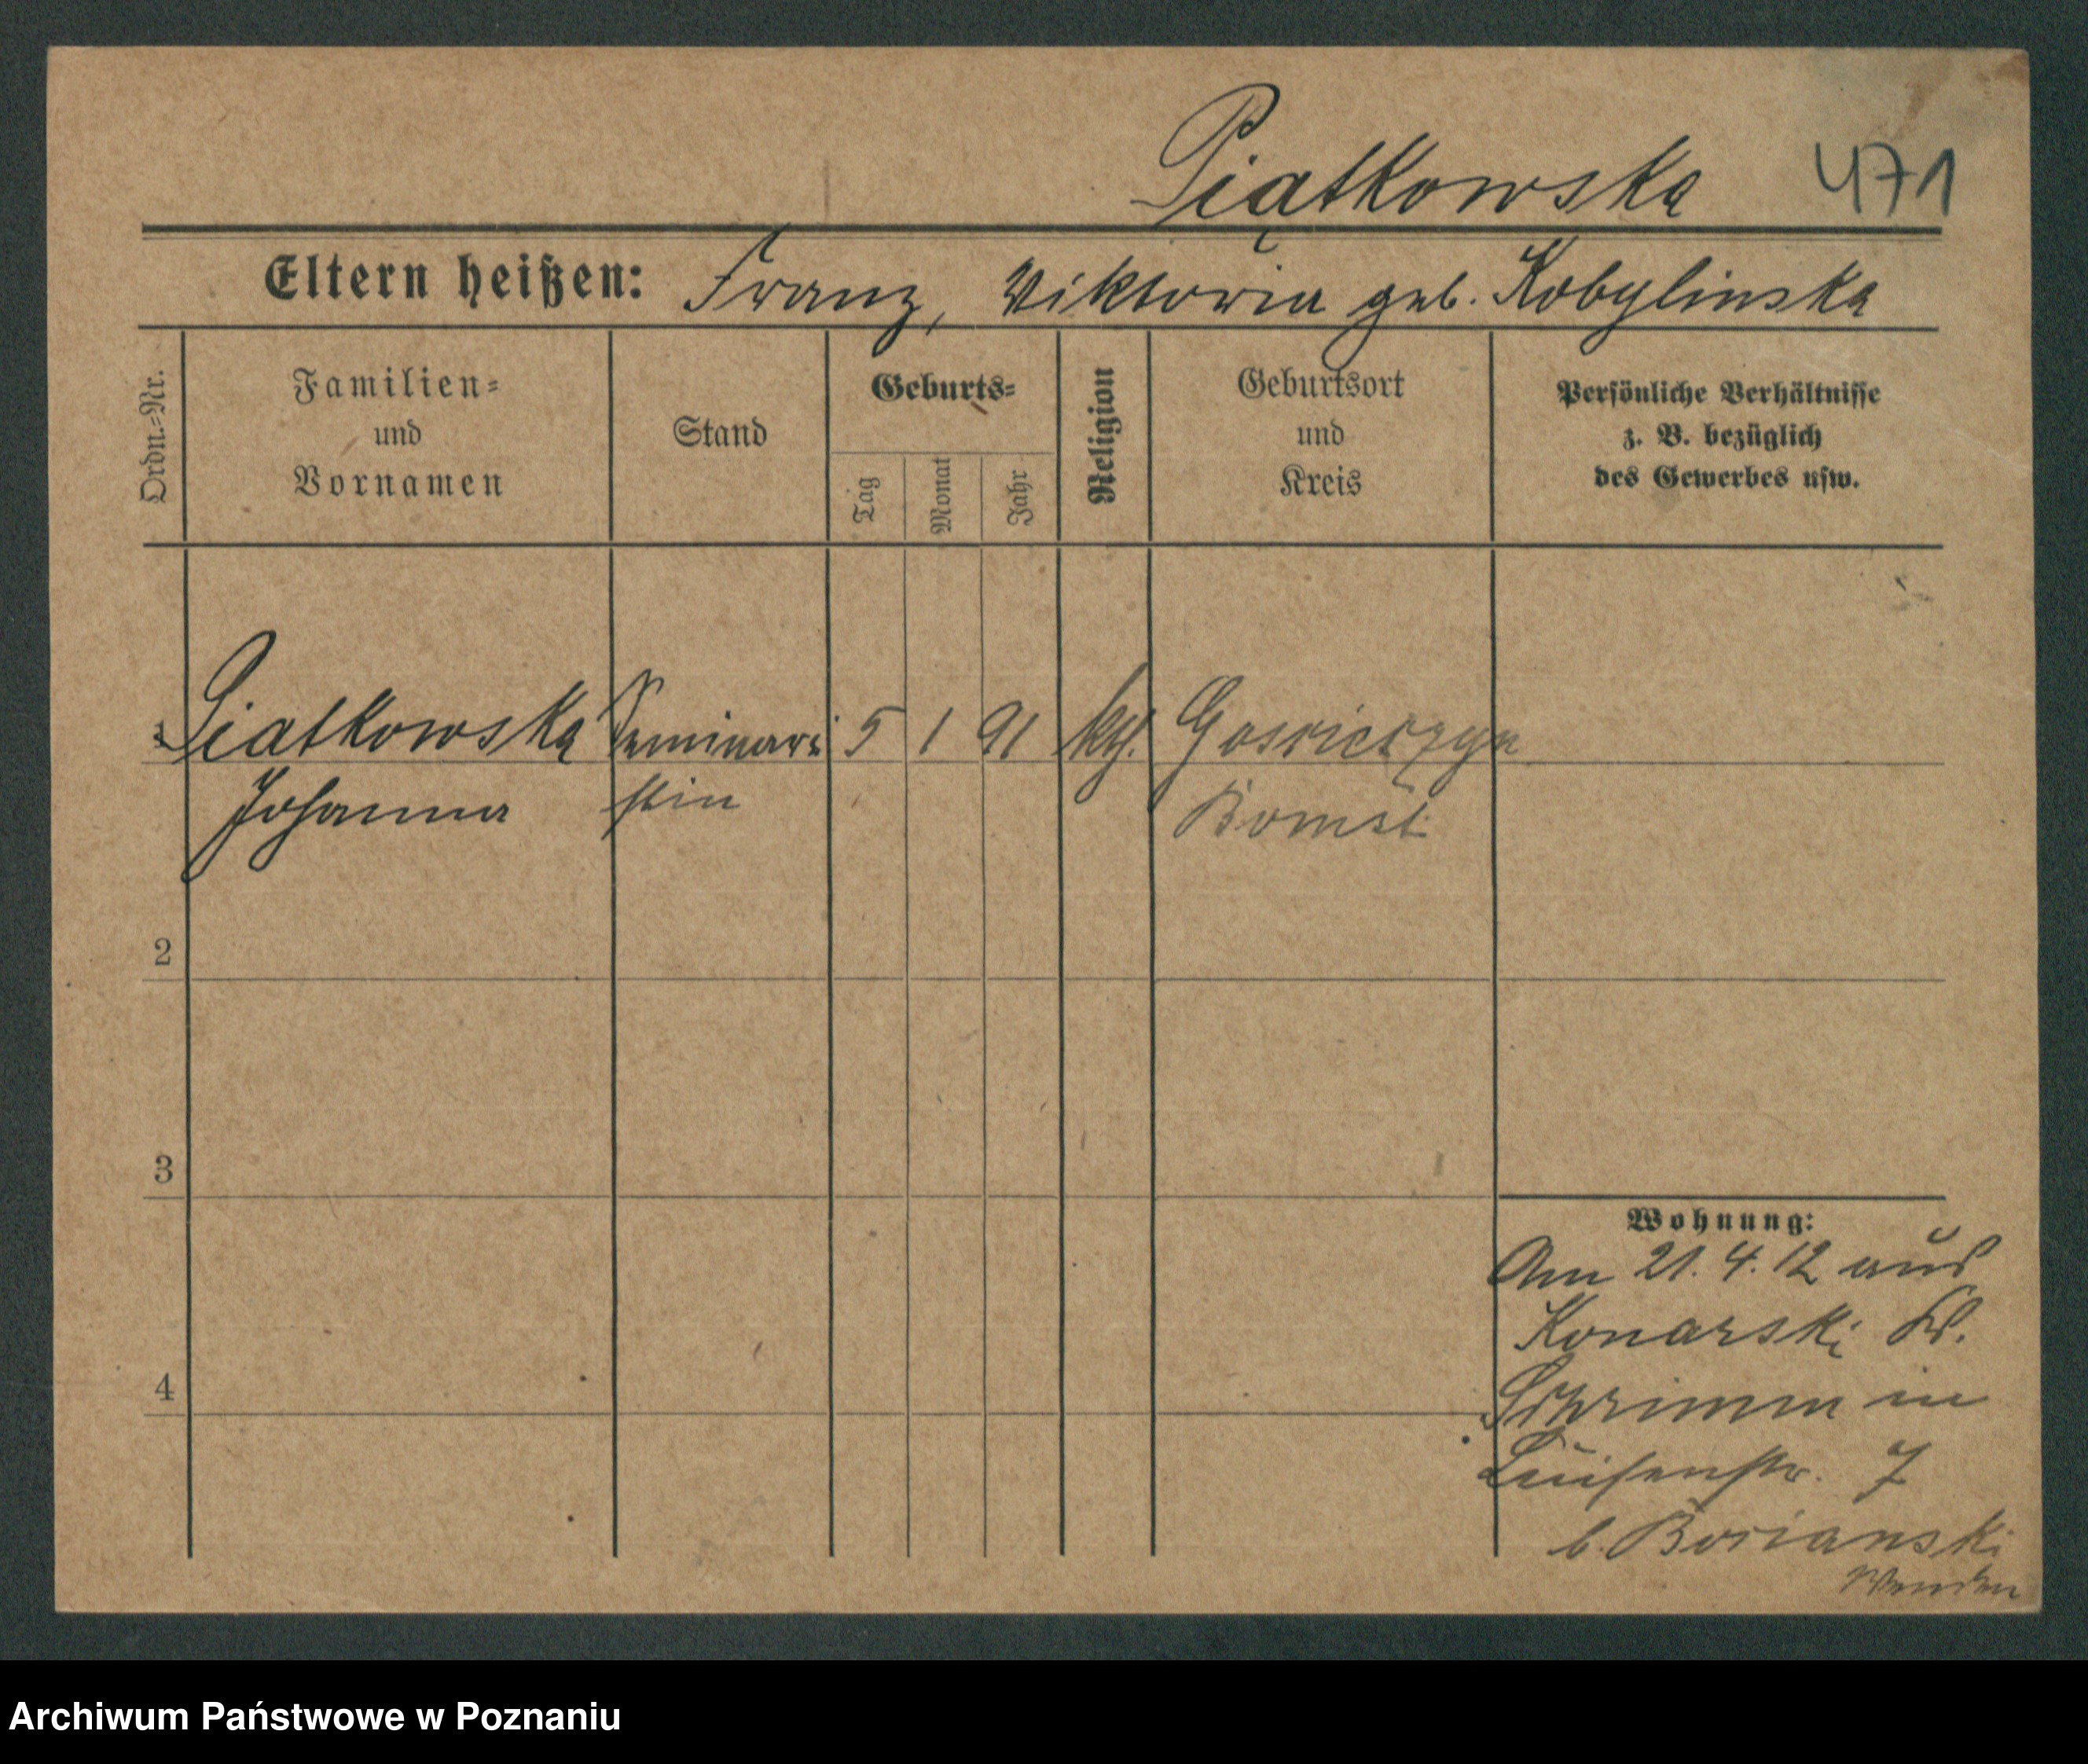 Piątkowska 471
Eltern heißen: Franz, Viktoria geb. Kobylinska
Ordn.=Nr.
Familien=
und
Vornamen
Stand
Geburts=
Tag
Monat
Jahr
Religion
Geburtsort
und
Kreis
Persönliche Verhältnisse
z. B. bezüglich
des Gewerbes usw.
1 Piatkowska Seminari 5 1 91 kth. Goscieszyn
Johanna stin Bomst
2
3
4
Wohnung:
Am 21.4.12 aus
Konarski Kr.
Schrimm in
Luisenstr. 7
b. Borianski
Wenden
Archiwum Państwowe w Poznaniu